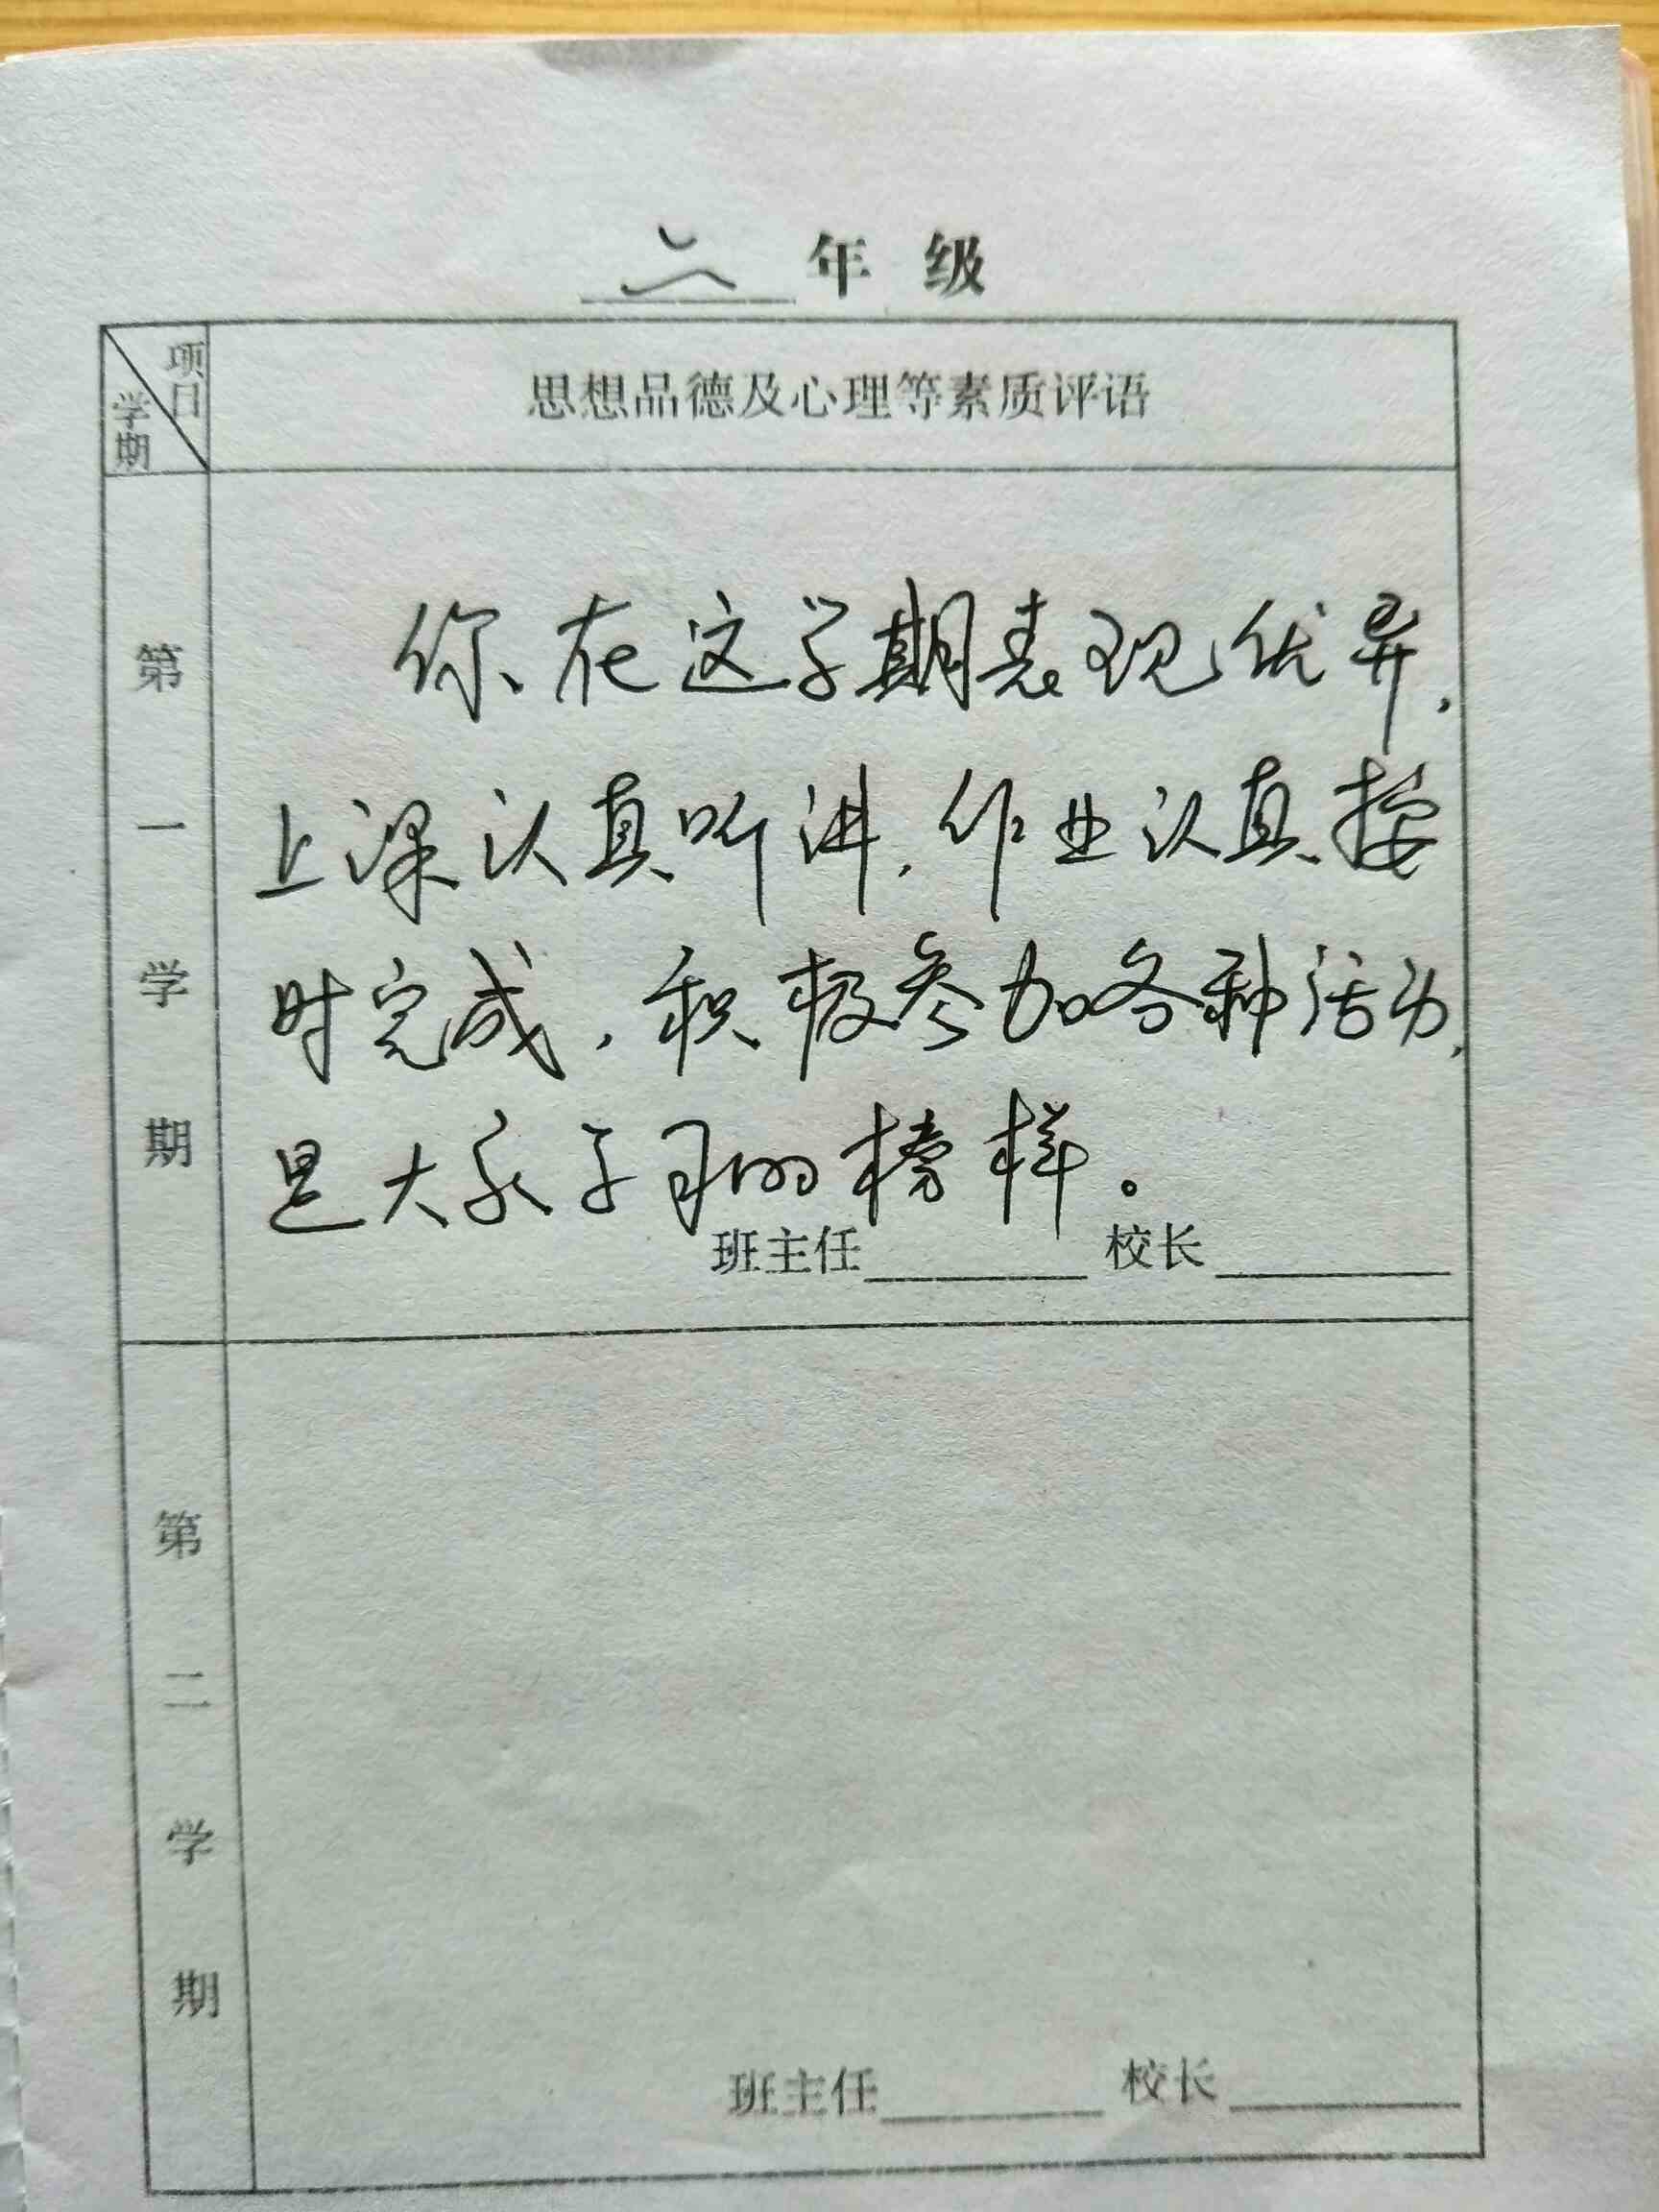 六年级
项目
学期
思想品德及心理等素质评语
第一学期
你在这学期表现优异，
上课认真听讲，作业认真按
时完成，积极参加各种活动，
是大家学习的榜样。
班主任 校长
第二学期
班主任 校长